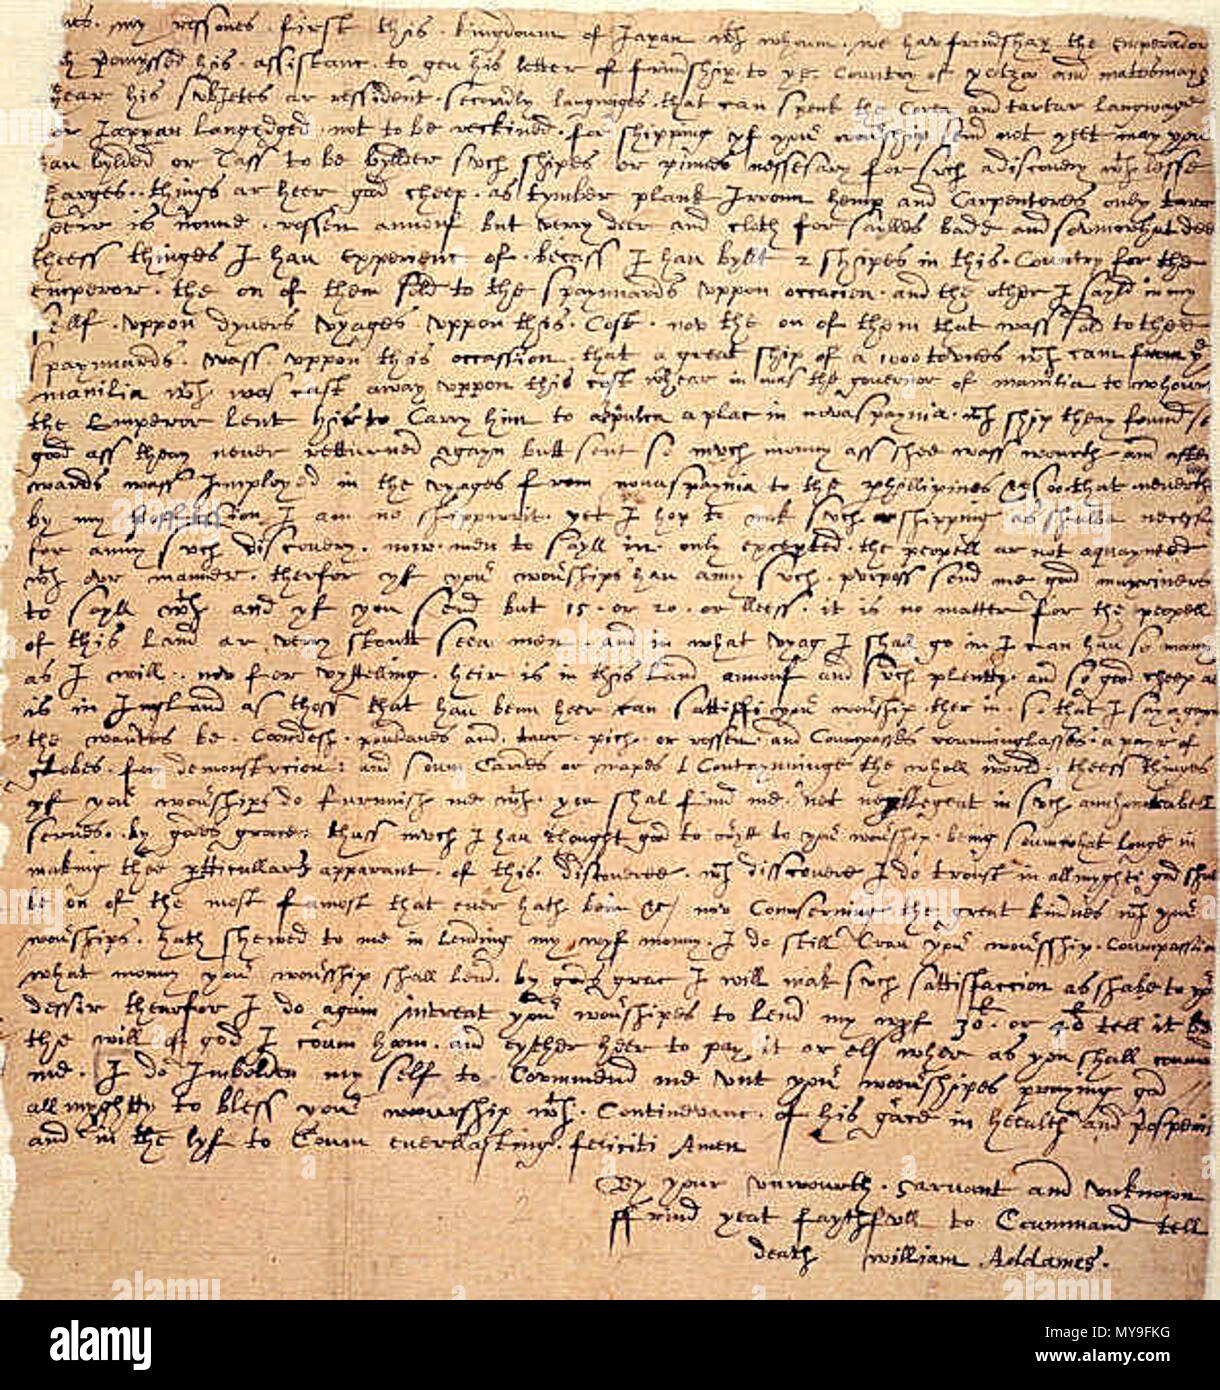 my ressones. first this. kingdoum of Japan wth whoum. we hav frindshap the emperador
promyssed his. assistanc. to geu his letter of frindship. to ye Country of and
hear his subietes ar ressident. secondly langwiges. that can speek the Corea and tartar langwage
or Jappan langedged. not to be reckined. for shipping yf your wourship send not yeet may you
hav bylded or Cass to be bylded such shipes or pinnes nessesary for such a discovery wth lesse
charges. things ar heer good cheep. as tymber plank Irroun hemp and Carpentores only tarr
heeir is nonne. rossen annouf but verry deer and cloth for saylles badd and somwhat deer
theess thinges I hau experienc of. becass I hau bylt 2 shipes in this. Country for the
emperore. the on of them sold to the spaynnards uppon occacion. and the other I sayld in my
self. uppon dyvers vyages uppon this. Cost. nov the on of them that wass sold to thee
spaynnards. wass uppon this occassion. that a great ship of a 1000 tonnes wch cam from ye
manilia wch was cast away uppon this cost whear in was the governor of manilia to whoum
the Emperor lent hir to Carry him to a plac in novaspaynia. wch ship theay found so
good ass theay never retturned agayn butt sent so much monny ass shee wass wourth and after
wards wass Imployed in the vyages from novaspaynia to the phillipines &c soo that neverth
by my proffession I am no shippwrit. yet I hop to mak such shipping as shalbe necess
for anny such discovery. now. men to sayll in. only excepted. the peopell ar not aquaynted
wth our manner. therfor yf your wourships hau anny such. purposs send me good marriners
to sayll wth. and yf you send but 15. or 20. or lless. it is no matter for the peopell
of this land ar verry stoutt seea men. and in what vyag I shal go in I can hau so many
as I will. nov for vytteling. heir is in this land annouf and such plentty. and so good cheep as
is in Ingland as thoss that hau benn heer can sattisffi your wourship ther in. so that I say agayn
the wantes be. Cordesh. pouldaues and. tarr. pich. or rossen. and Coumpasses rounninglasses. a payr of
globes. for demonstrcion: and soum Cardes or mapes Contayninge the wholl world. theess thinges
yf your wourships do furnnish me wth. you shal find me. not neglegent in such
serues. by godes grace: thuss much I hau thought good to wrytt to your wourship. being soumwhat longe in
making thee pticullars apparant. of this. discoveree. wch discovere I do troust in allmyghti god shal
be on of the most famost that ever hath benn &c/ nov Counserning the great kindnes wch your
wourships. hath shewed to me in lending my wyf monny. I do still Crau your wourship. Coumpassion
what monny your wourship shall lend. by gods grac I will mak such sattisfaccion as shalbe to your
dessir therrfor I do again intreat your wourshipes to lend my wyf 30l. or 40l tell it
the will of god I coum hoom. and eyther heer to pay it or els wher as you shall comm
me. I do Imbolden my self to. Commend me unt your wourshipes praying god
allmyghtty to bless your wourship wth. Contineuanc. of his grace in heealth and prosperiti
and in the lyf to Coum everllasting. feliciti Amen
By your unwourth. sarvant and unknown
ffrind yeat faythfull to Coummand tell
death william Addames.